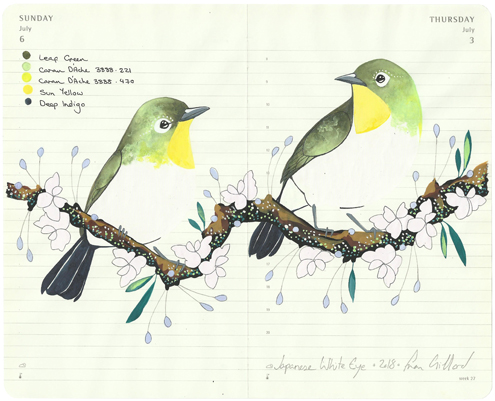 SUNDAY
July
6
Leap Green
Caran D'Ache 3888.221
Caran D'Ache 3888.470
Sun Yellow
Deep Indigo
THURSDAY
July
3
Japanese White Eye . 2018 .
week 27